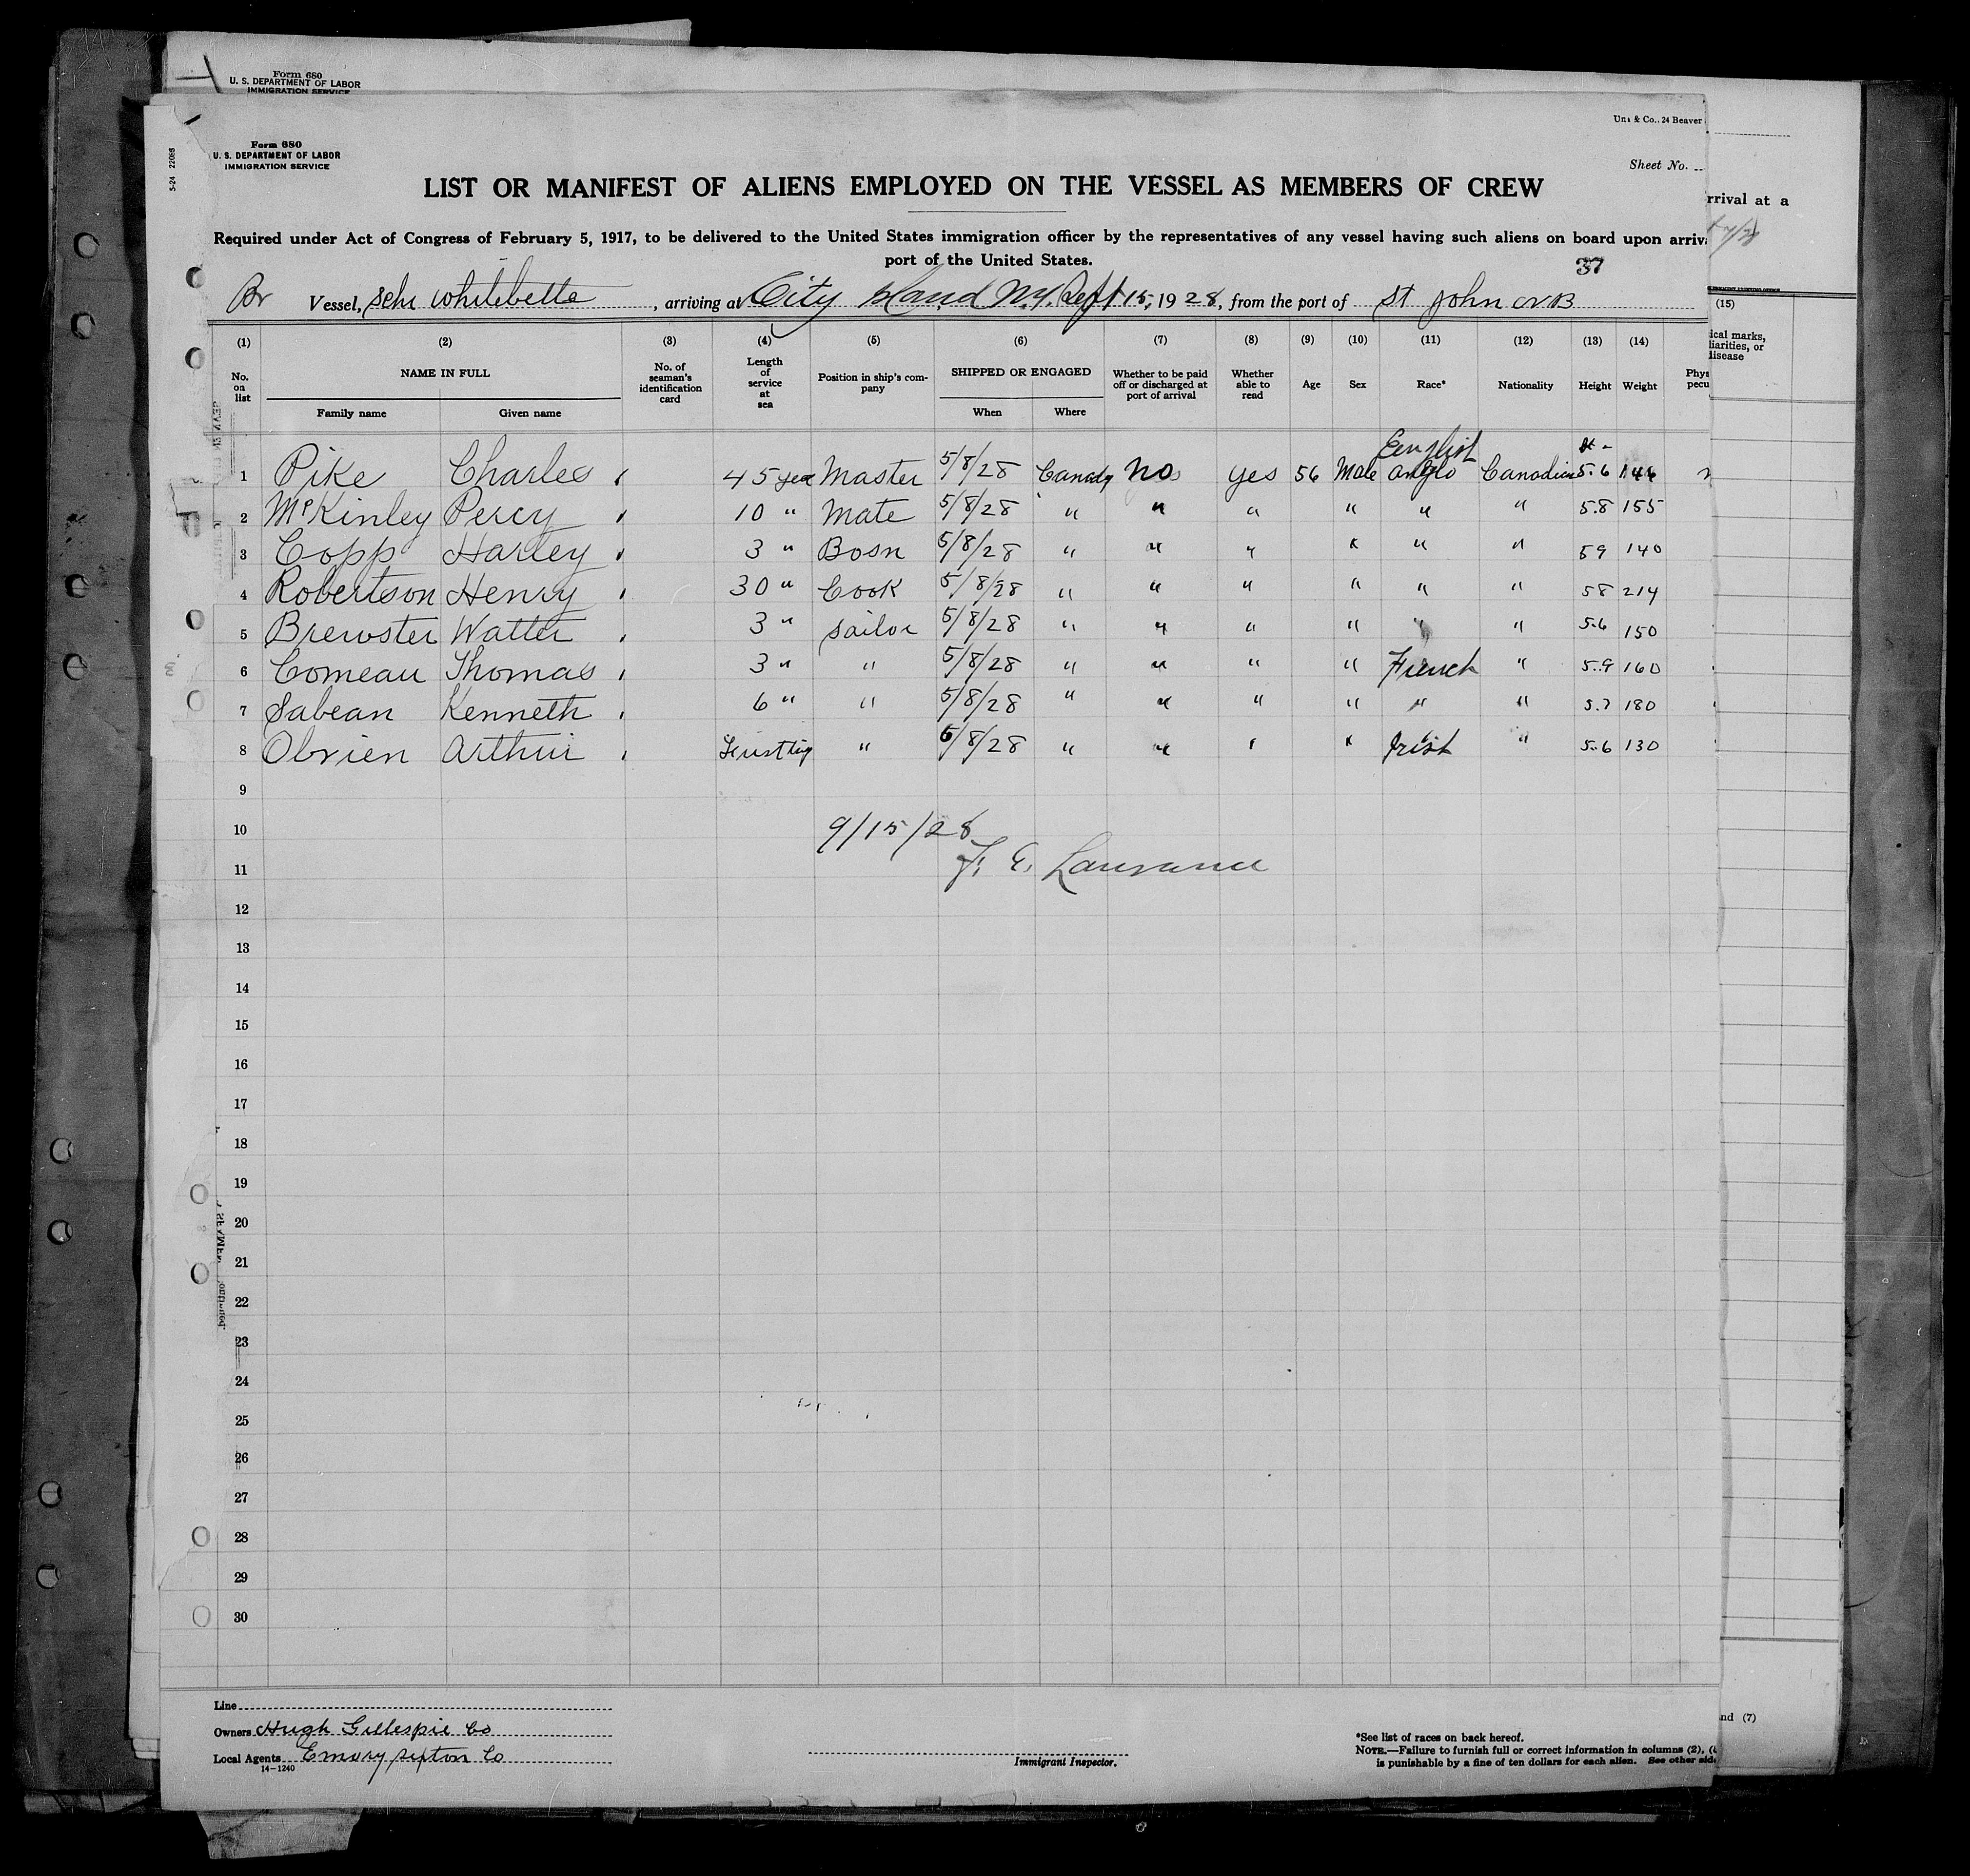 Form 680
U. S. DEPARTMENT OF LABOR
IMMIGRATION SERVICE
Form 680
U. S. DEPARTMENT OF LABOR
IMMIGRATION SERVICE
5-24
& Co., 24 Beaver
Sheet No.
LIST OR MANIFEST OF ALIENS EMPLOYED ON THE VESSEL AS MEMBERS OF CREW
rrival at a
Required under Act of Congress of February 5, 1917, to be delivered to the United States immigration officer by the representatives of any vessel having such aliens on board upon arriv
port of the United States.
37
Br Vessel, Schr Whitebelle, arriving at City Island N.Y. Sept 15, 1928, from the port of St John N.B
(1) (2) (3) (4) (5) (6) (7) (8) (9) (10) (11) (12) (13) (14) (15)
No. on list NAME IN FULL No. of seaman's identification card Length of service at sea Position in ship's company SHIPPED OR ENGAGED Whether to be paid off or discharged at port of arrival Whether able to read Age Sex Race* Nationality Height Weight Phys pecu ical marks, liarities, or disease
Family name Given name When Where
English
1 Pike Charles 45 yea Master 5/8/28 Canada No yes 56 Male anglo Canadian 5.6 146
2 McKinley Percy 10 " Mate 5/8/28 " " " " " " 5.8 155
3 Copp Harley 3 " Bosn 5/8/28 " " " " " " 59 140
4 Robertson Henry 30 " Cook 5/8/28 " " " " " " 58 214
5 Brewster Walter 3 " Sailor 5/8/28 " " " " " " 5.6 150
6 Comeau Thomas 3 " " 5/8/28 " " " " French " 5.9 160
7 Sabean Kenneth 6 " " 5/8/28 " " " " " " 5.7 180
8 Obrien Arthur First trip " 5/8/28 " " " " Irish " 5.6 130
9
10 9/15/28
11
12
13
14
15
16
17
18
19
20
21
22
23
24
25
26
27
28
29
30
Line
Owners Hugh Gillespie Co
Local Agents Emory Sexton Co
14-1240
Immigrant Inspector.
*See list of races on back hereof.
NOTE.—Failure to furnish full or correct information in columns (2), (
is punishable by a fine of ten dollars for each alien. See other side
nd (7)